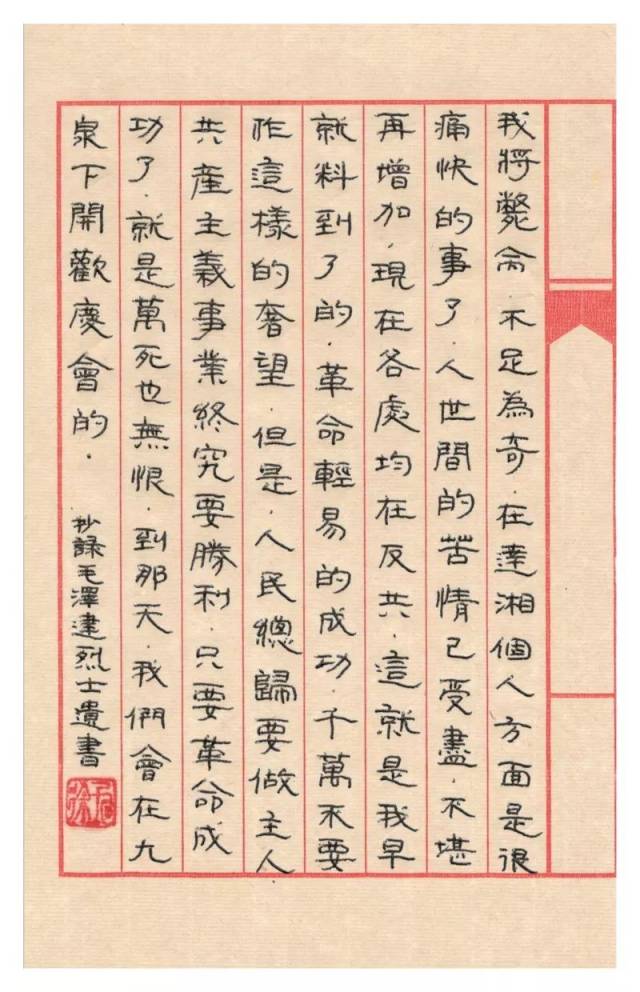 我将斃命.不足為奇.在達湘個人方面是很
痛快的事了.人世間的苦情已受盡.不堪
再增加.現在各處均在反共.這就是我早
就料到了的.革命輕易的成功.千萬不要
作這樣的奢望.但是.人民總歸要做主人
共產主義事業終究要勝利.只要革命成
功了.就是萬死也無恨.到那天.我們會在九
泉下開歡慶會的.
抄錄毛澤建烈士遺書